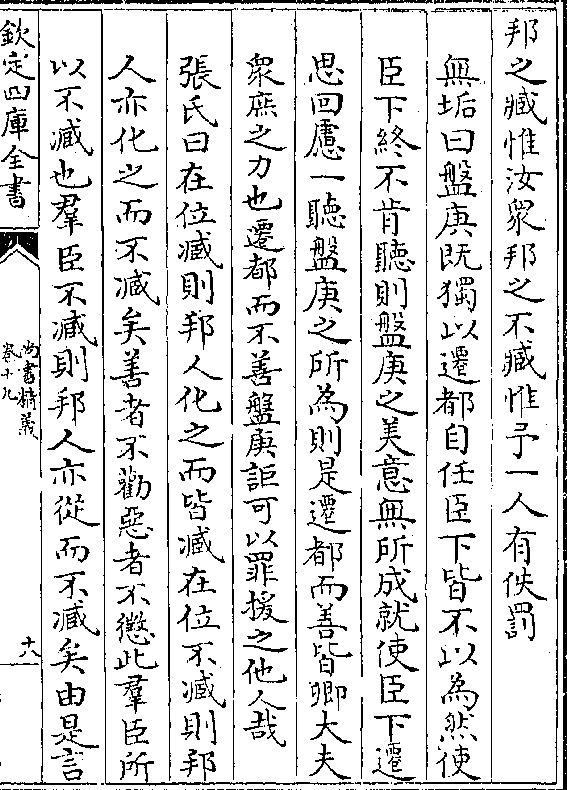 邦之臧惟汝衆邦之不臧惟予一人有佚罰
無垢曰盤庚既獨以遷都自任臣下皆不以為然使
臣下終不肯聽則盤庚之美意無所成就使臣下遷
思回慮一聽盤庚之所為則是遷都而善皆卿大夫
衆庶之力也遷都而不善盤庚詎可以罪援之他人哉
張氏曰在位臧則邦人化之而皆臧在位不臧則邦
人亦化之而不臧矣善者不勸惡者不懲此羣臣所
以不臧也羣臣不臧則邦人亦從而不臧矣由是言
欽定四庫全書
尚書精義
卷十九
十八